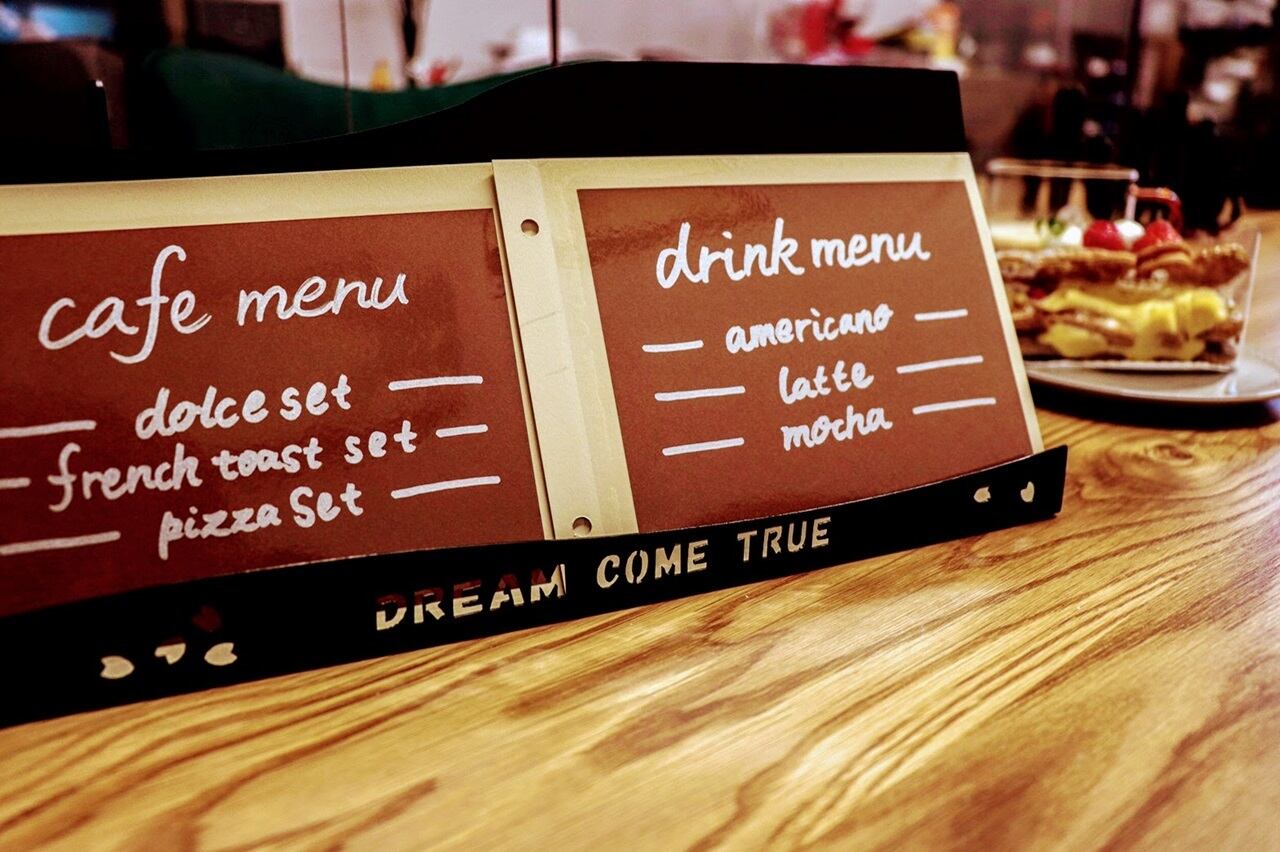 cafe menu
dolce set
french toast set
pizza Set
drink menu
americano
latte
mocha
DREAM COME TRUE